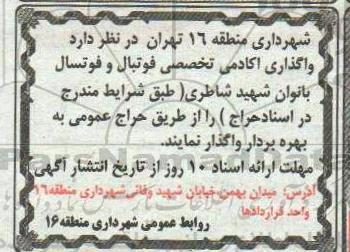 شهرداری منطقه ۱۶ تهران در نظر دارد
واگذاری اکادمی تخصصی فوتبال و فوتسال
بانوان شهید شاطری( طبق شرایط مندرج
در اسنادحراج ) را از طریق حراج عمومی به
بهره بردار واگذار نمایند.
مهلت ارائه اسناد ۱۰ روز از تاریخ انتشار آگهی
آدرس: میدان بهمن خیابان شهید وفائی شهرداری منطقه۱۶
واحد قراردادها
روابط عمومی شهرداری منطقه۱۶